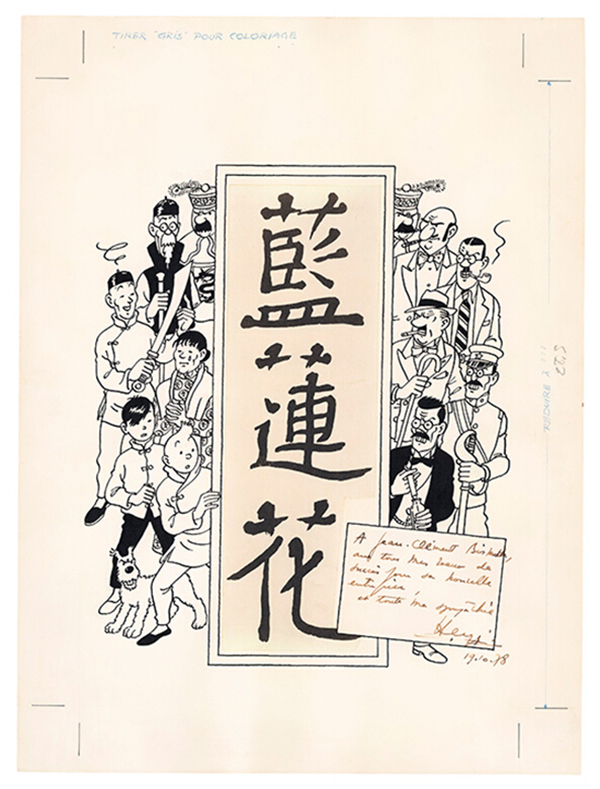 TIRER "GRIS" POUR COLORIAGE
藍
蓮
花
A Jean-Clément
avec tous mes vœux de
succès pour sa nouvelle
entreprise,
et toute ma sympathie
Hergé
19.10.78
REDUIRE À